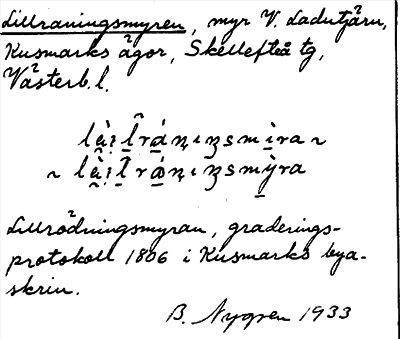 Lillråningsmyren, myr V. Ladutjärn,
Kusmarks ägor, Skellefteå tg,
Västerb. l.
Lillrödningsmyran, graderings-
protokoll 1806 i Kusmarks bya-
skrin.
B. Nygren 1933